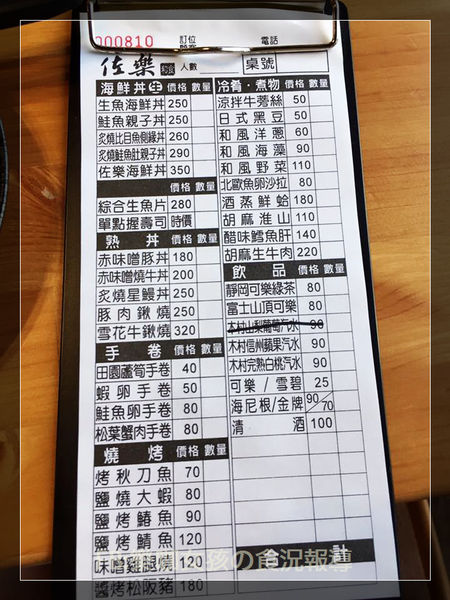 000810
訂位
電話
佐樂
人數
桌號
海鮮丼 生 價格 數量
生魚海鮮丼 250
鮭魚親子丼 250
炙燒比目魚側緣丼 260
炙燒鮭魚肚親子丼 290
佐樂海鮮丼 350
價格 數量
綜合生魚片 280
單點握壽司 時價
熟丼 價格 數量
赤味噌豚丼 180
赤味噌燒牛丼 200
炙燒星鰻丼 250
豚肉鍬燒 250
雪花牛鍬燒 320
手卷 價格 數量
田園蘆筍手卷 40
蝦卵手卷 50
鮭魚卵手卷 80
松葉蟹肉手卷 80
燒烤 價格 數量
烤秋刀魚 70
鹽燒大蝦 80
鹽烤鰆魚 90
鹽烤鯖魚 120
味噌雞腿燒 120
醬烤松阪豬 180
冷肴·煮物 價格 數量
涼拌牛蒡絲 50
日式黑豆 50
和風洋蔥 60
和風海藻 90
和風野菜 110
北歐魚卵沙拉 80
酒蒸鮮蛤 180
胡麻淮山 110
醋味鱈魚肝 140
胡麻生牛肉 220
飲品 價格 數量
靜岡可樂綠茶 80
富士山頂可樂 80
木村山梨葡萄汽水 90
木村信州蘋果汽水 90
木村完熟白桃汽水 90
可樂/雪碧 25
海尼根/金牌 90/70
清酒 100
合計
女孩の食況報導